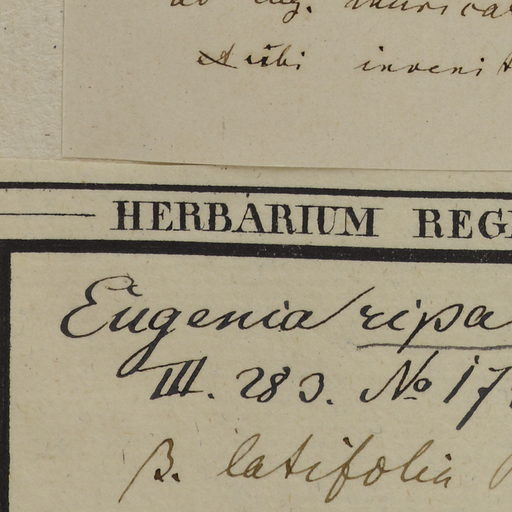 inveni
HERBARIUM REG
Eugenia ripa
III. 283. No 17
β. latifolia